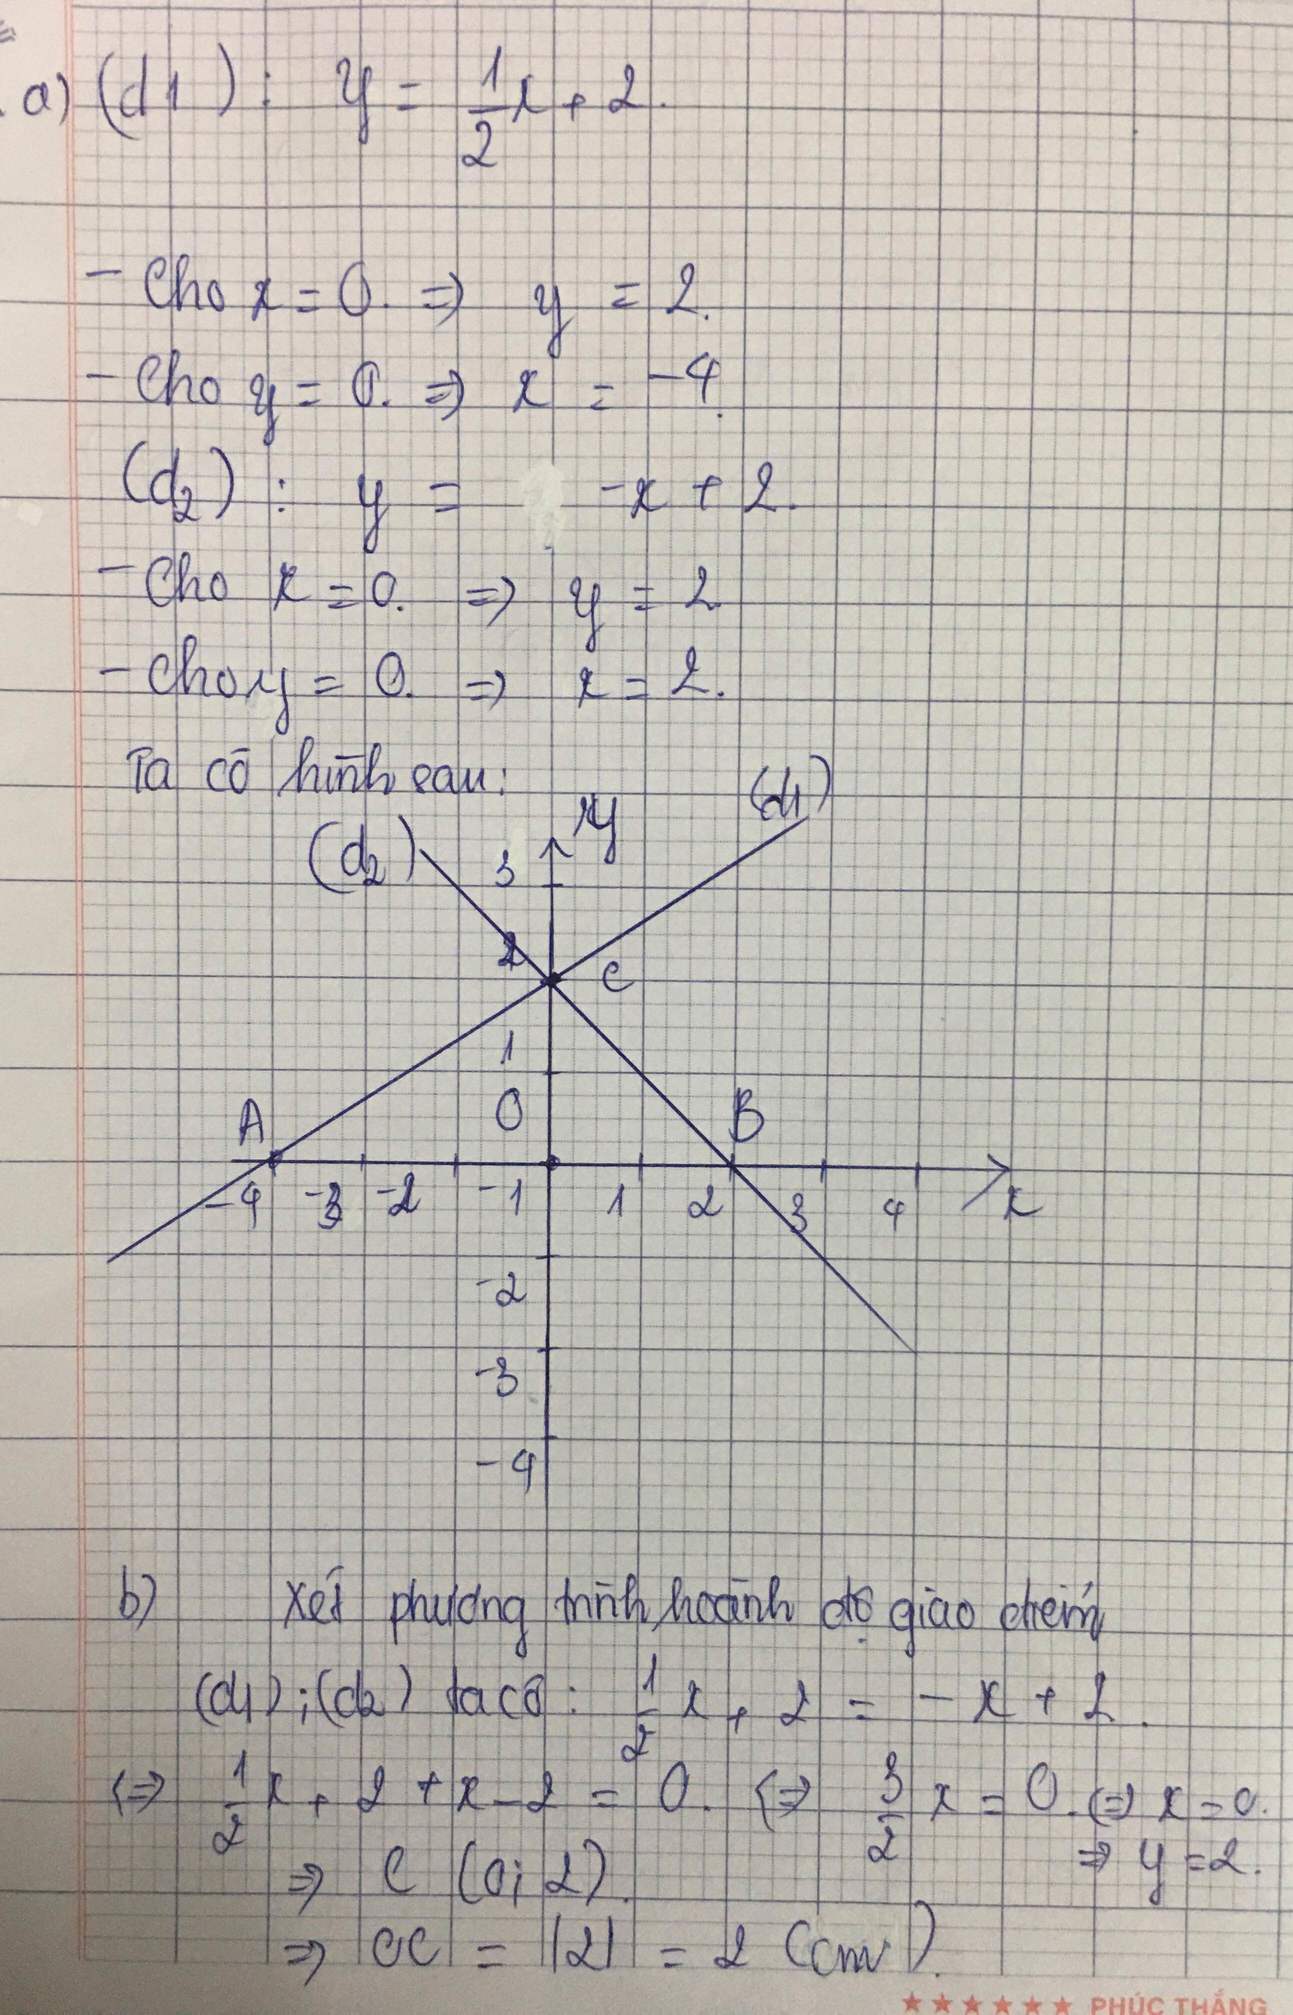 a) (d1): y = 1/2 x + 2.
- Cho x = 0. => y = 2.
- Cho y = 0. => x = -4.
(d2): y = -x + 2.
- Cho x = 0. => y = 2
- Cho y = 0. => x = 2.
Ta có hình sau:
(d2) 3 y (d1)
2 C
1
A O B
-4 -3 -2 -1 1 2 3 4 x
-2
-3
-4
b) Xét phương trình hoành độ giao điểm
(d1); (d2) ta có: 1/2 x + 2 = -x + 2.
<=> 1/2 x + 2 + x - 2 = 0. <=> 3/2 x = 0. <=> x = 0.
=> y = 2.
=> C (0; 2).
=> OC = |2| = 2 (cm).
★★★★★★ PHÚC THẮNG